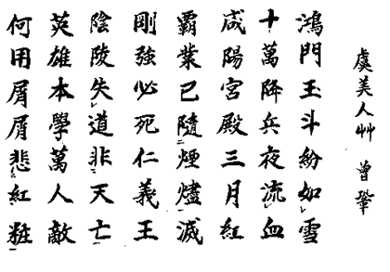 虞美人艸 曾鞏
鴻門玉斗紛如雪
十萬降兵夜流血
咸陽宮殿三月紅
霸業已隨煙燼滅
剛強必死仁義王
陰陵失道非天亡
英雄本學萬人敵
何用屑屑悲紅粧